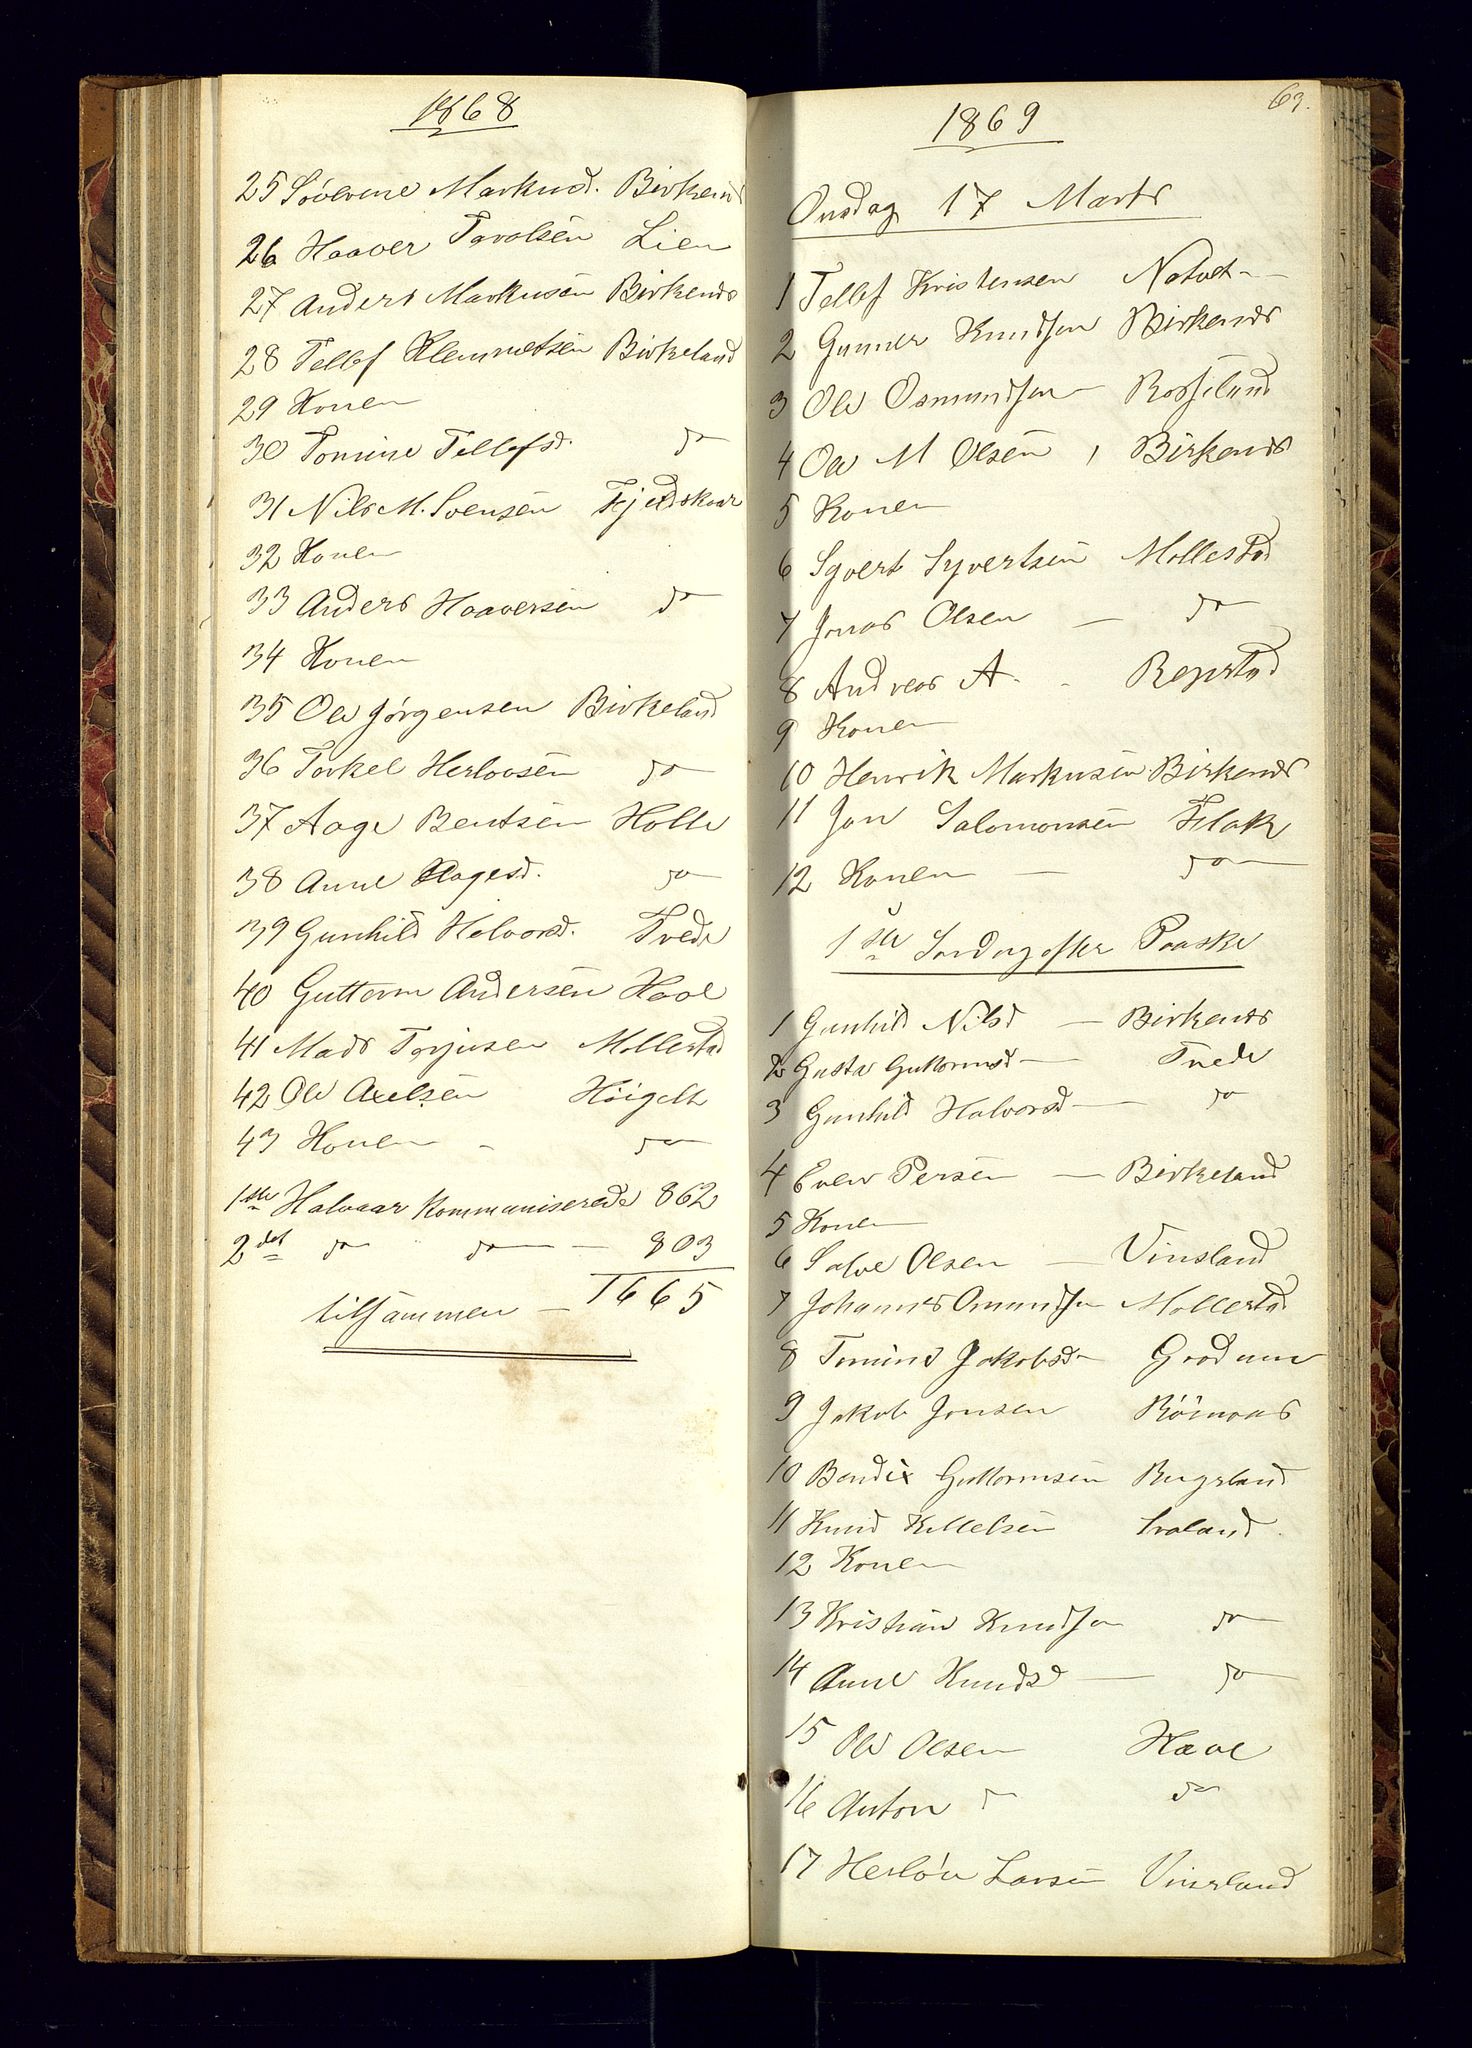 1868
25 Sövrine Markusd. Birkends
26 Haaver Tarolsen Lien
27 Anders Markusen Birkends
28 Tellef Klemmetsen Birkeland
29 Konen
30 Tomine Tellefsd. do
31 Nils M. Svensen Fjeldskaar
32 Konen
33 Anders Haaversen do
34 Konen
35 Ole Jörgensen Birkeland
36 Torkel Herlovsen do
37 Aage Bentsen Holte
38 Anne Aagesd. do
39 Gunhild Halvorsd. Tvede
40 Guttorm Andersen Have
41 Mads Terjusen Mollestad
42 Ole Axelsen Höigelt
43 Konen - do
1ste Halvaar Kommuniserede 862
2det do do - 803
tilsammen - 1665
63.
1869
Onsdag 17 Marts
1 Tellef Kristensen Natvet -
2 Gunner Knudsen Birkends
3 Ole Osmundsen - Rosseland
4 Ole M Olsen, Birkends
5 Konen
6 Syvert Syvertsen Mollestad
7 Jonas Olsen - do
8 Andreas A. - Repstad
9 Konen
10 Henrik Markusen Birkends
11 Jon Salomonsen Flak
12 Konen - do
1ste Søndag efter Paaske
1 Gunhild Nilsd - Birkends
2 Gusta Guttormsd - Tvede
3 Gunhild Halvorsd - do
4 Even Persen - Birkeland
5 Konen
6 Salve Olsen - Vinsland
7 Johannes Omundsen Mollestad
8 Tomine Jakobsd - Grodum
9 Jakob Jonsen
10 Bendix Guttormsen Bugsland
11 Knud Kittelsen Svaland.
12 Konen
13 Kristian Knudsen do
14 Anne Knudsd - do
15 Ole Olsen Have
16 Anton do do
17 Herlöv Larsen Vinsland